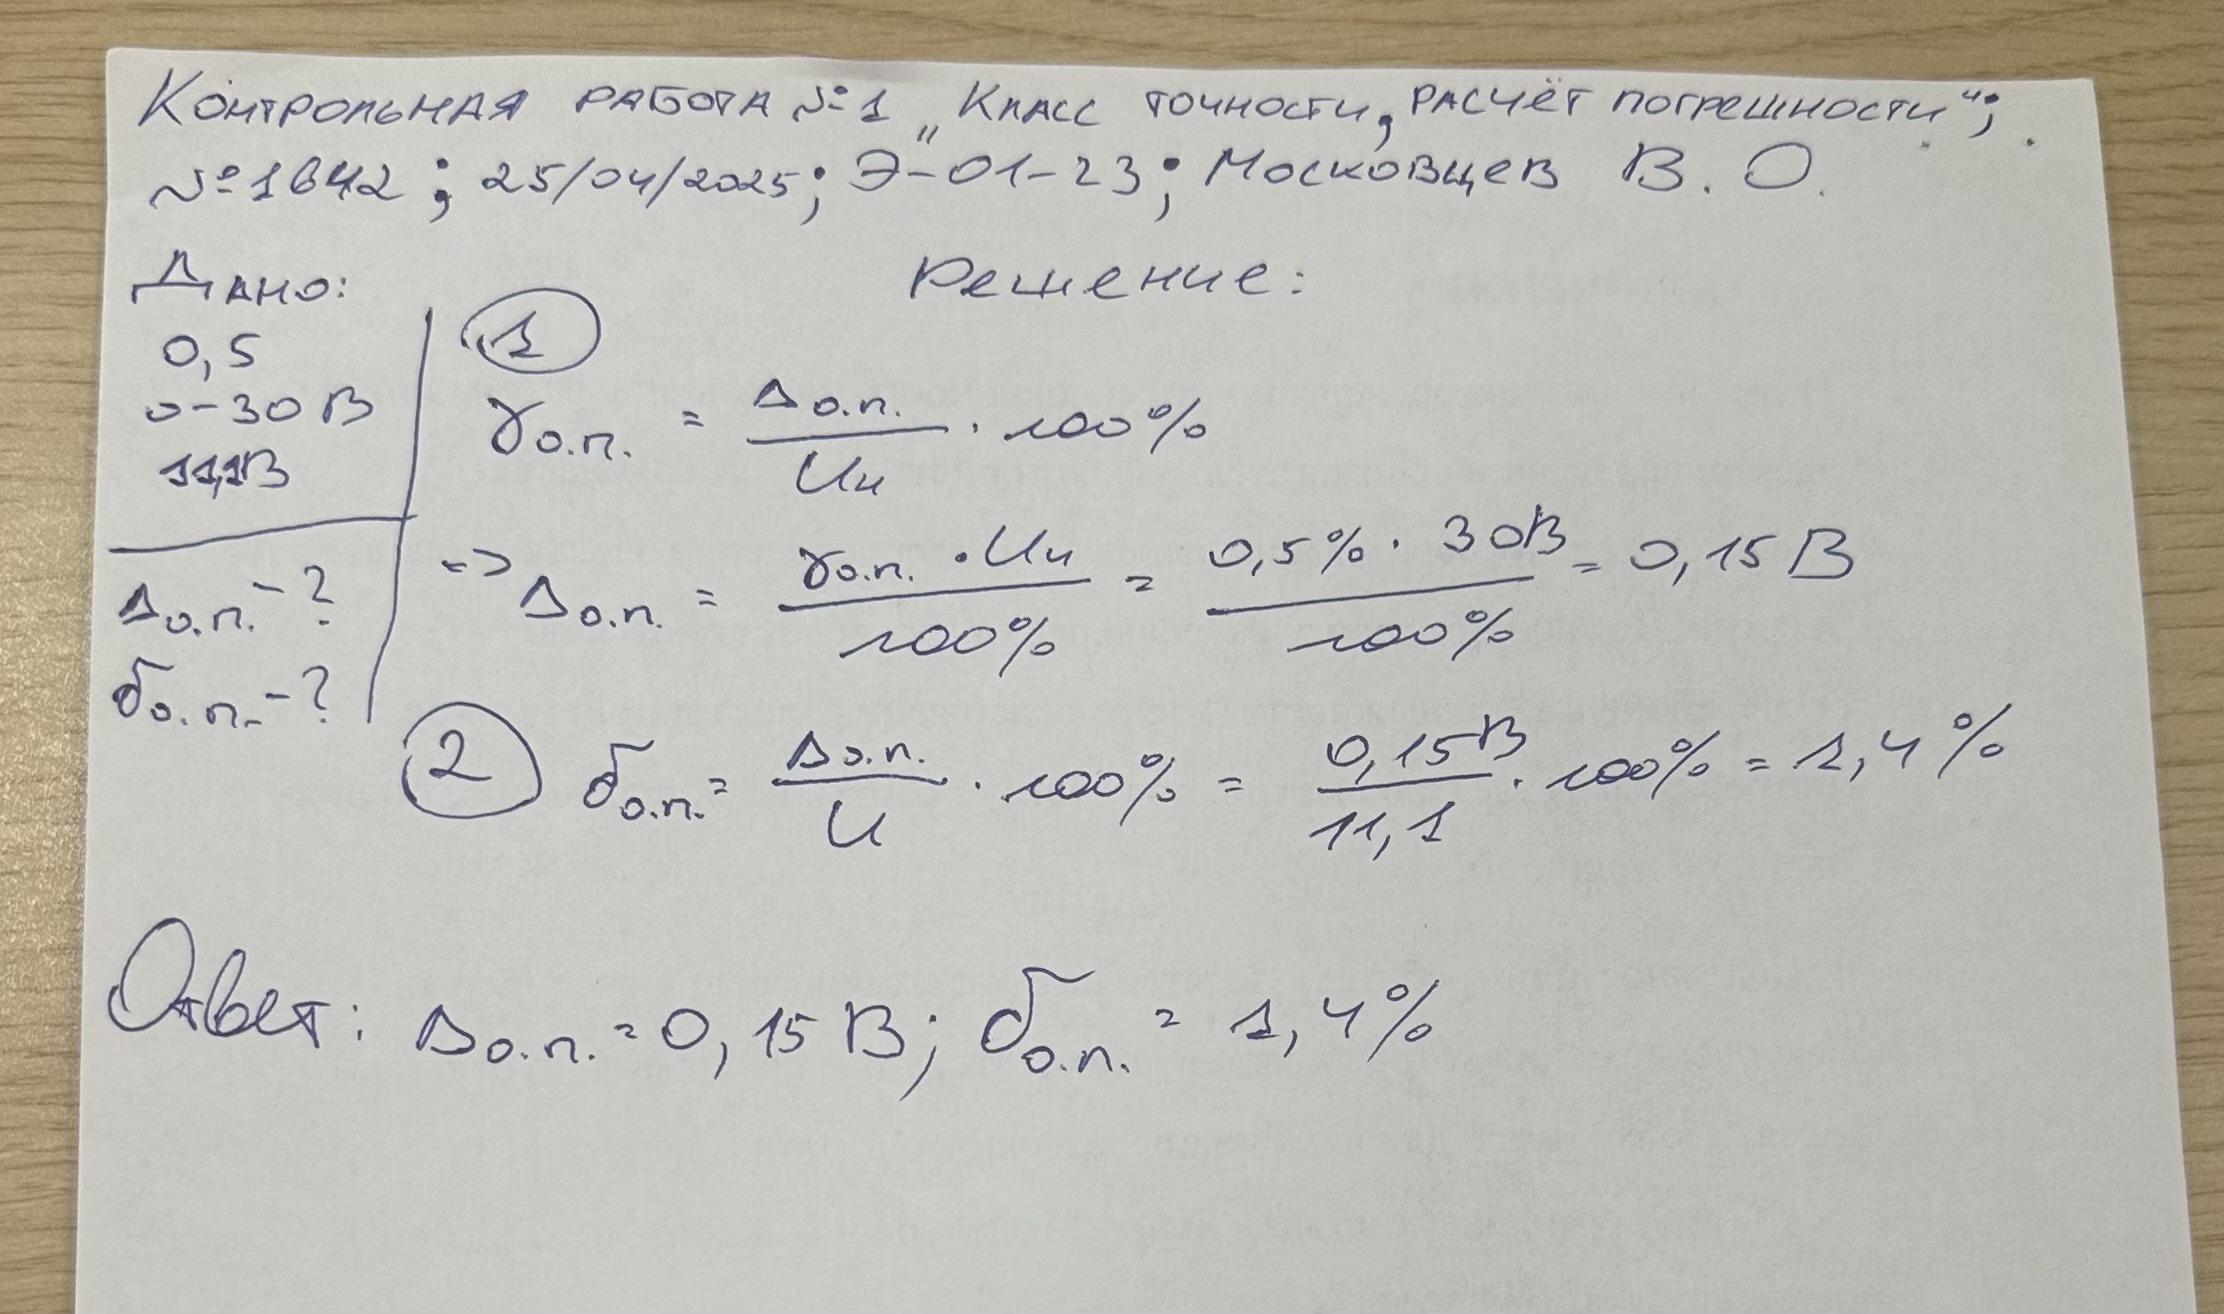 Контрольная работа №1 „Класс точности, расчёт погрешности“;
№1642; 25/04/2025; Э-01-23; Московцев В. О.
Решение:
Дано:
0,5
0-30 В
11,1В
Δо.п. - ?
δо.п. - ?
1
γо.п. = Δо.п. / Uн · 100%
=> Δо.п. = γо.п. · Uн / 100% = 0,5% · 30В / 100% = 0,15 В
2
δо.п. = Δо.п. / U · 100% = 0,15В / 11,1 · 100% = 1,4%
Ответ: Δо.п. = 0,15 В; δо.п. = 1,4%